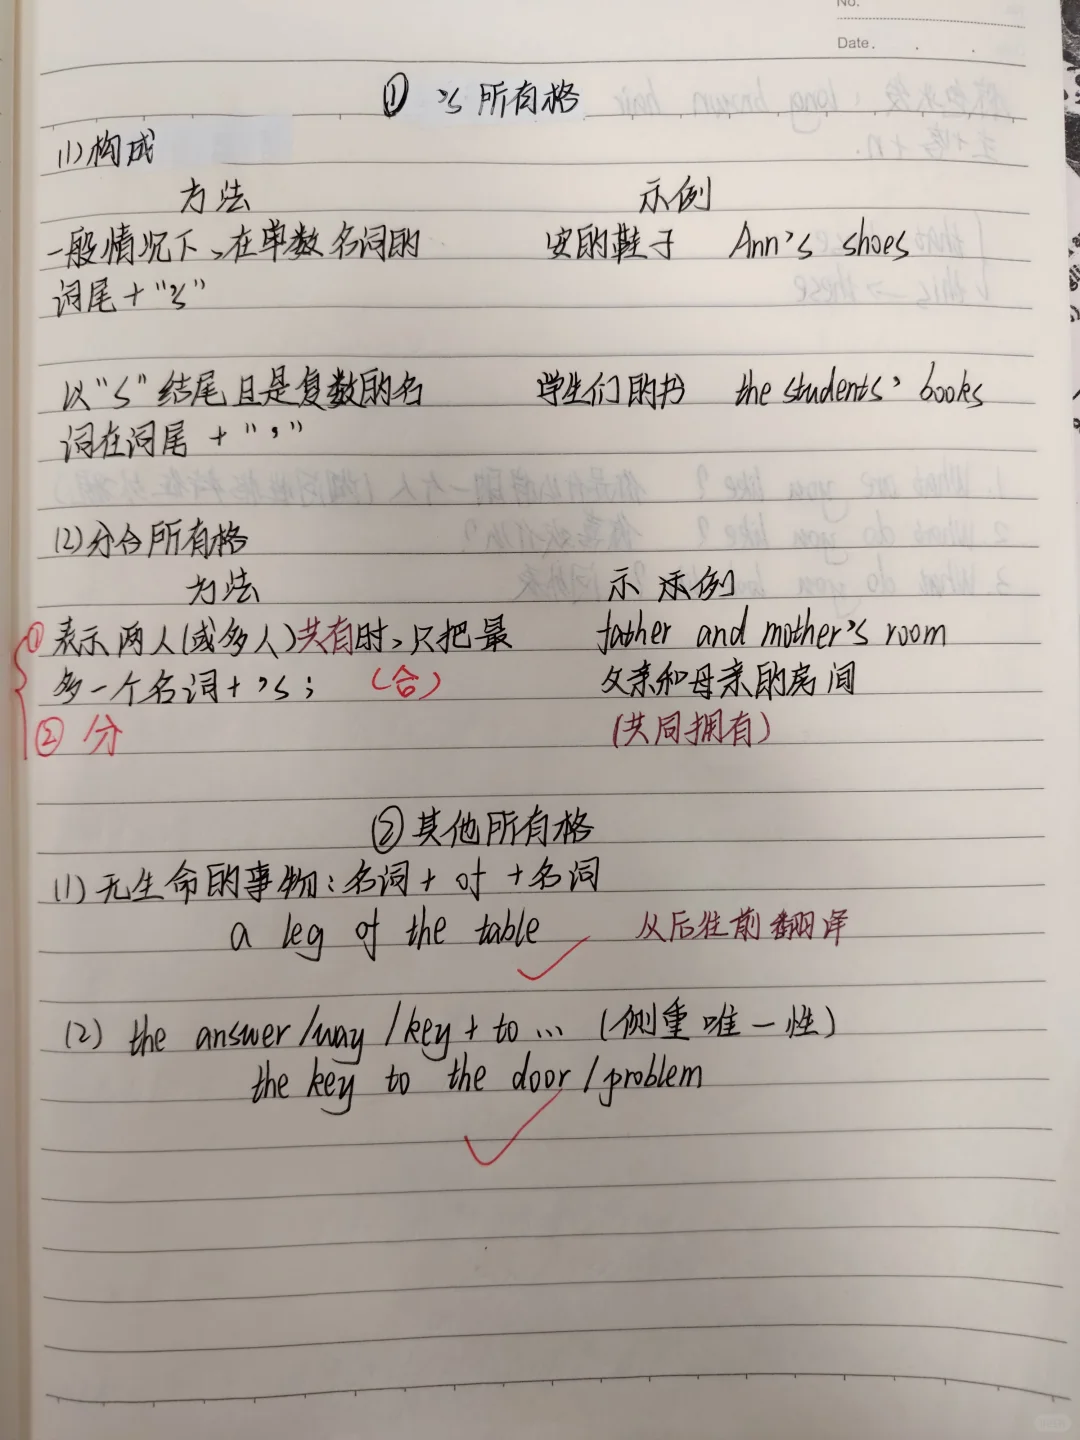 No.
Date.
① 's 所有格
(1)构成
方法 示例
一般情况下,在单数名词的 安的鞋子 Ann's shoes
词尾+"'s"
以"s"结尾且是复数的名 学生们的书 the students' books
词在词尾 + "'"
(2)分合所有格
方法 示 示例
① 表示两人(或多人)共有时,只把最 father and mother's room
多一个名词+'s; (合) 父亲和母亲的房间
② 分 (共同拥有)
② 其他所有格
(1)无生命的事物:名词+ of +名词
a leg of the table 从后往前翻译
(2) the answer/way/key + to ... (侧重唯一性)
the key to the door/problem